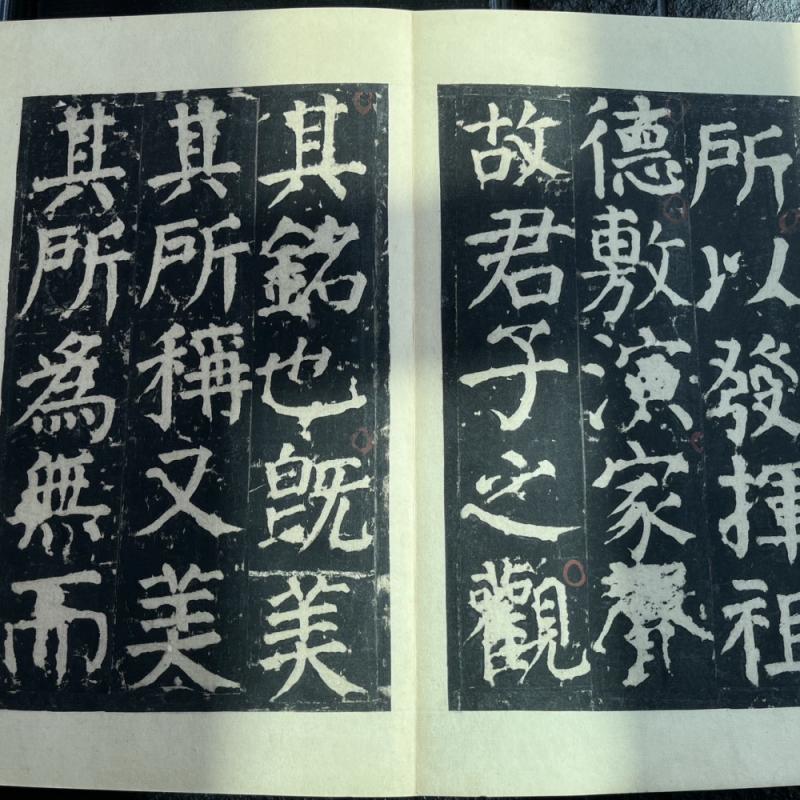 所以發揮祖
德敷演家聲
故君子之觀
其銘也既美
其所稱又美
其所為無而